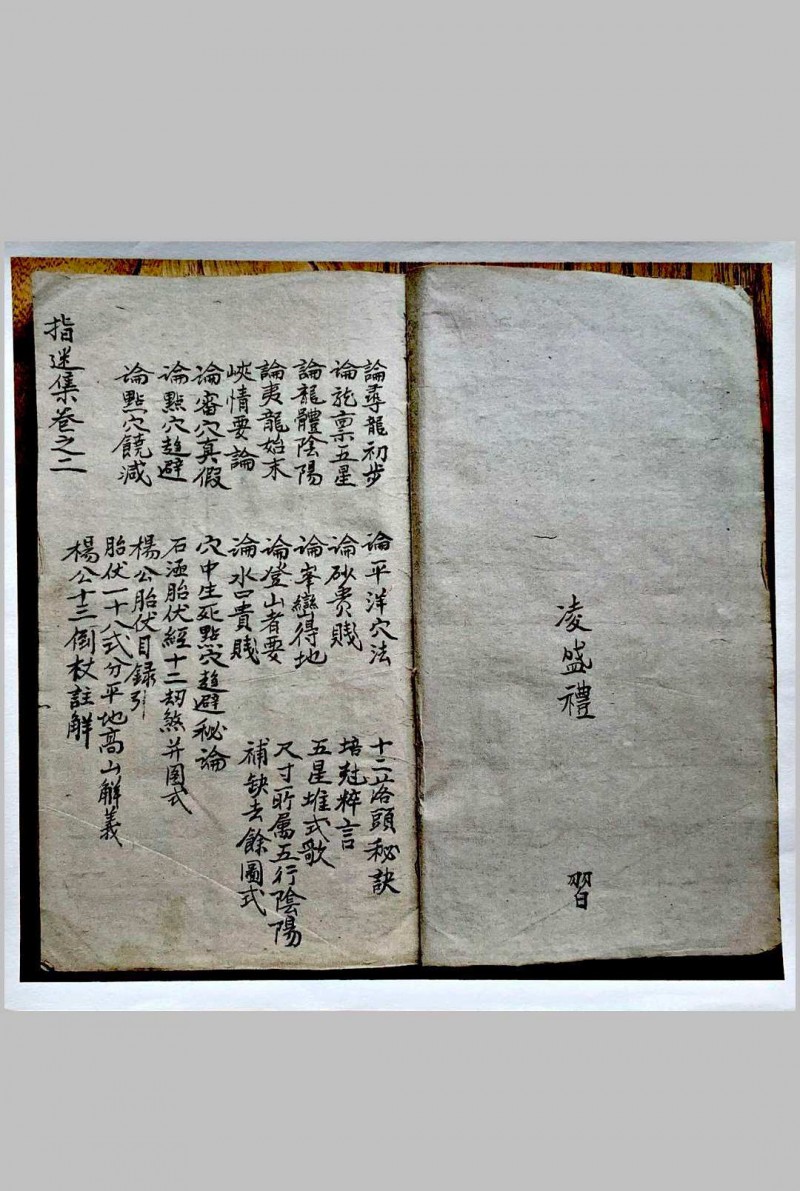 凌盛禮
習
論尋龍初步
论龍禀五星
論龍體陰陽
論夷龍始末
峽情要論
论審穴真假
论點穴趋避
论點穴饒减
论平洋穴法
论砂贵賤
論峯巒得地
論登山者要
論水口貴賤
穴中生死點穴趋避秘論
石函胎伏經十二刧煞并圖式
楊公胎伏目録引
胎伏一十八式分平地高山觧義
楊公十三倒杖註觧
十二落頭秘訣
培粹言
五星堆式歌
尺寸所属五行陰陽
補缺去餘圖式
指迷集卷之二